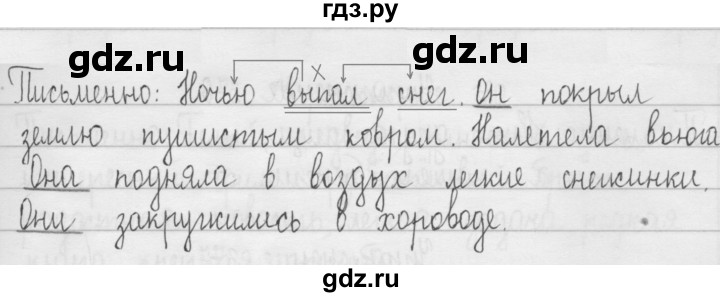 гдз.ру
gdz.ru
gdz.ru
х
Письменно: Ночью выпал снег. Он покрыл
землю пушистым ковром. Налетела вьюга
Она подняла в воздух легкие снежинки.
Они закружились в хороводе.
gdz.ru
gdz.ru
гдз.ру